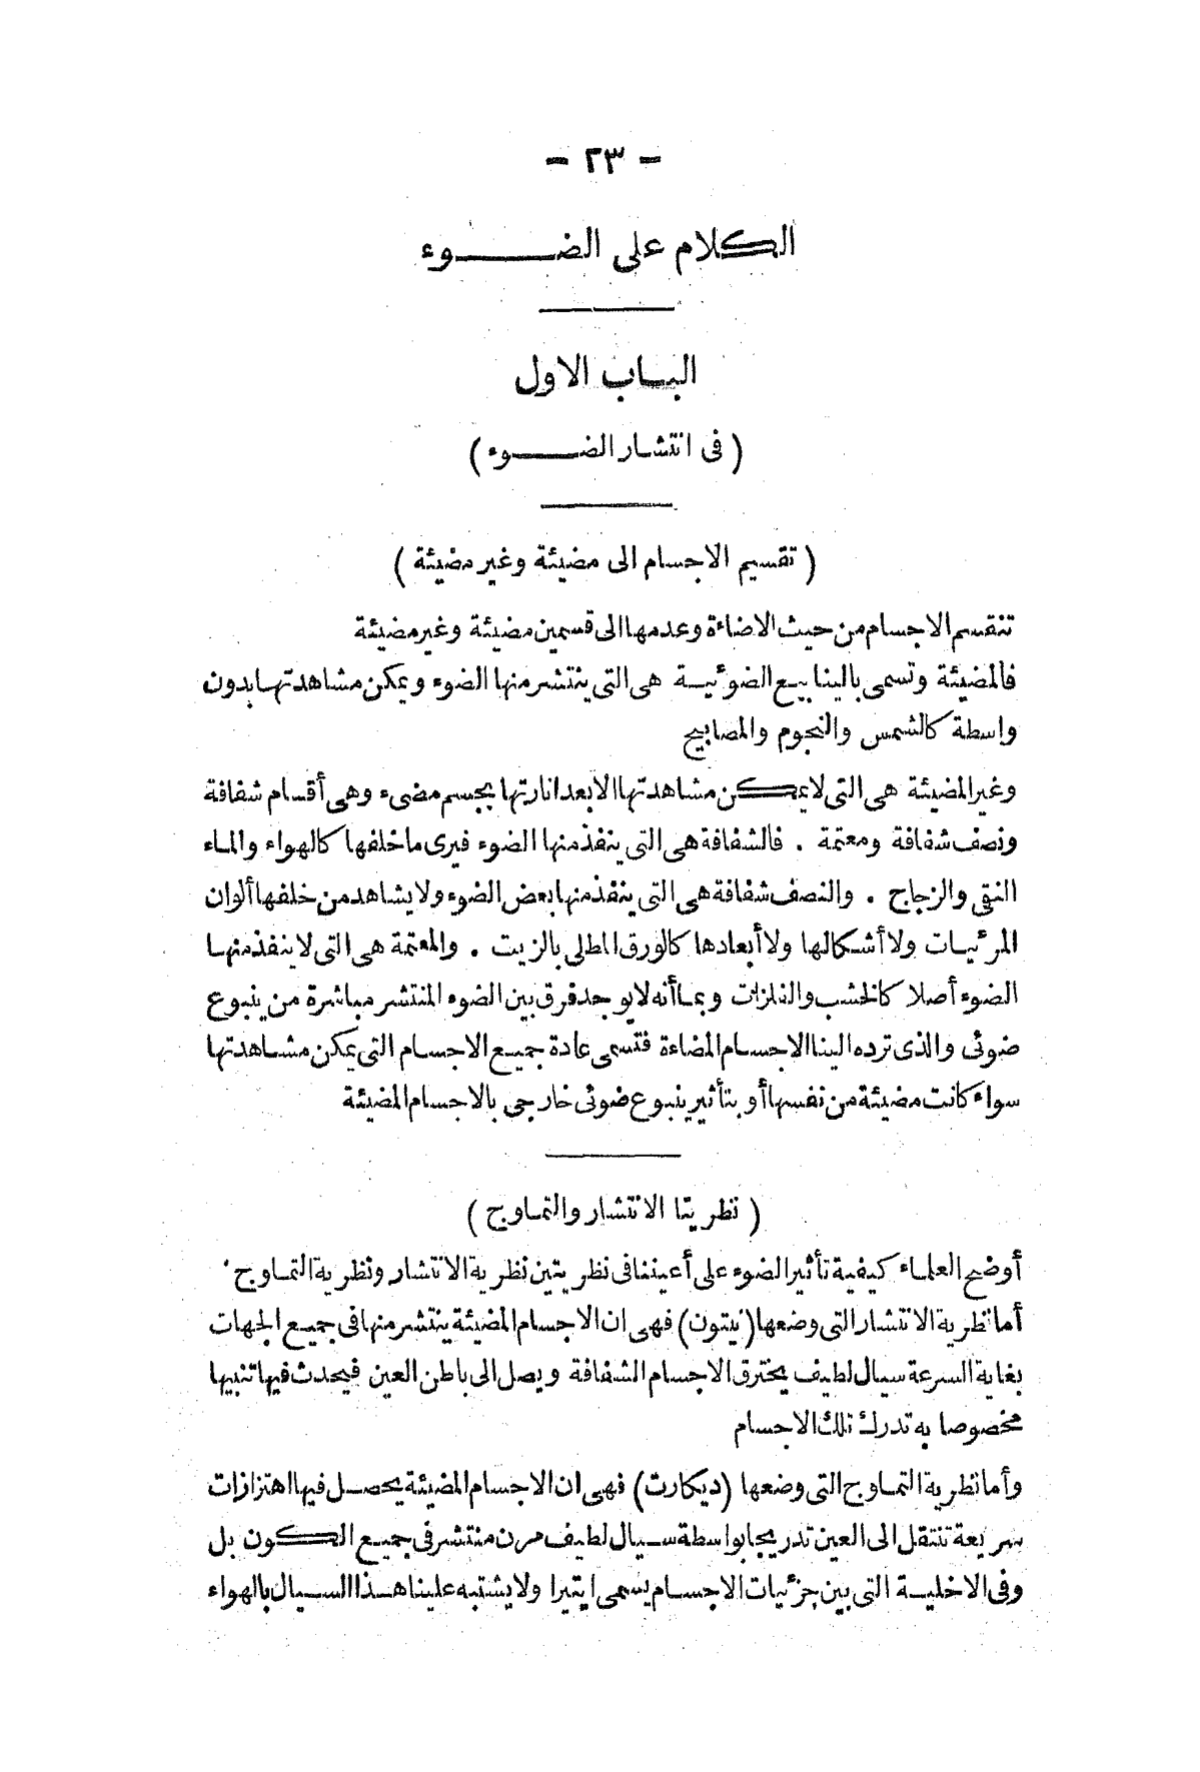 - ٢٣ -
الكلام على الضوء
الباب الاول
( فى انتشار الضوء )
( تقسيم الاجسام الى مضيئة وغير مضيئة )
تنقسم الاجسام من حيث الاضاءة وعدمها الى قسمين مضيئة وغير مضيئة
فالمضيئة وتسمى بالينابيع الضوئية هى التى ينتشر منها الضوء ويمكن مشاهدتها بدون
واسطة كالشمس والنجوم والمصابيح
وغير المضيئة هى التى لا يمكن مشاهدتها الا بعد انارتها بجسم مضىء وهى أقسام شفافة
ونصف شفافة ومعتمة . فالشفافة هى التى ينفذ منها الضوء فيرى ما خلفها كالهواء والماء
النقى والزجاج . والنصف شفافة هى التى ينفذ منها بعض الضوء ولا يشاهد من خلفها ألوان
المرئيات ولا أشكالها ولا أبعادها كالورق المطلى بالزيت . والمعتمة هى التى لا ينفذ منها
الضوء أصلا كالخشب والفلزات وبما أنه لا يوجد فرق بين الضوء المنتشر مباشرة من ينبوع
ضوئى والذى ترده الينا الاجسام المضاءة فتسمى عادة جميع الاجسام التى يمكن مشاهدتها
سواء كانت مضيئة من نفسها أو بتأثير ينبوع ضوئى خارجى بالاجسام المضيئة
( نظريتا الانتشار والتماوج )
أوضح العلماء كيفية تأثير الضوء على أعيننا فى نظريتين نظرية الانتشار ونظرية التماوج .
أما نظرية الانتشار التى وضعها (نيتون) فهى ان الاجسام المضيئة ينتشر منها فى جميع الجهات
بغاية السرعة سيال لطيف يخترق الاجسام الشفافة ويصل الى باطن العين فيحدث فيها تنبيها
مخصوصا به تدرك تلك الاجسام
وأما نظرية التماوج التى وضعها (ديكارت) فهى ان الاجسام المضيئة يحصل فيها اهتزازات
سريعة تنتقل الى العين تدريجا بواسطة سيال لطيف مرن منتشر فى جميع الكون بل
وفى الاخلية التى بين جزئيات الاجسام يسمى ايتيرا ولا يشتبه علينا هذا السيال بالهواء